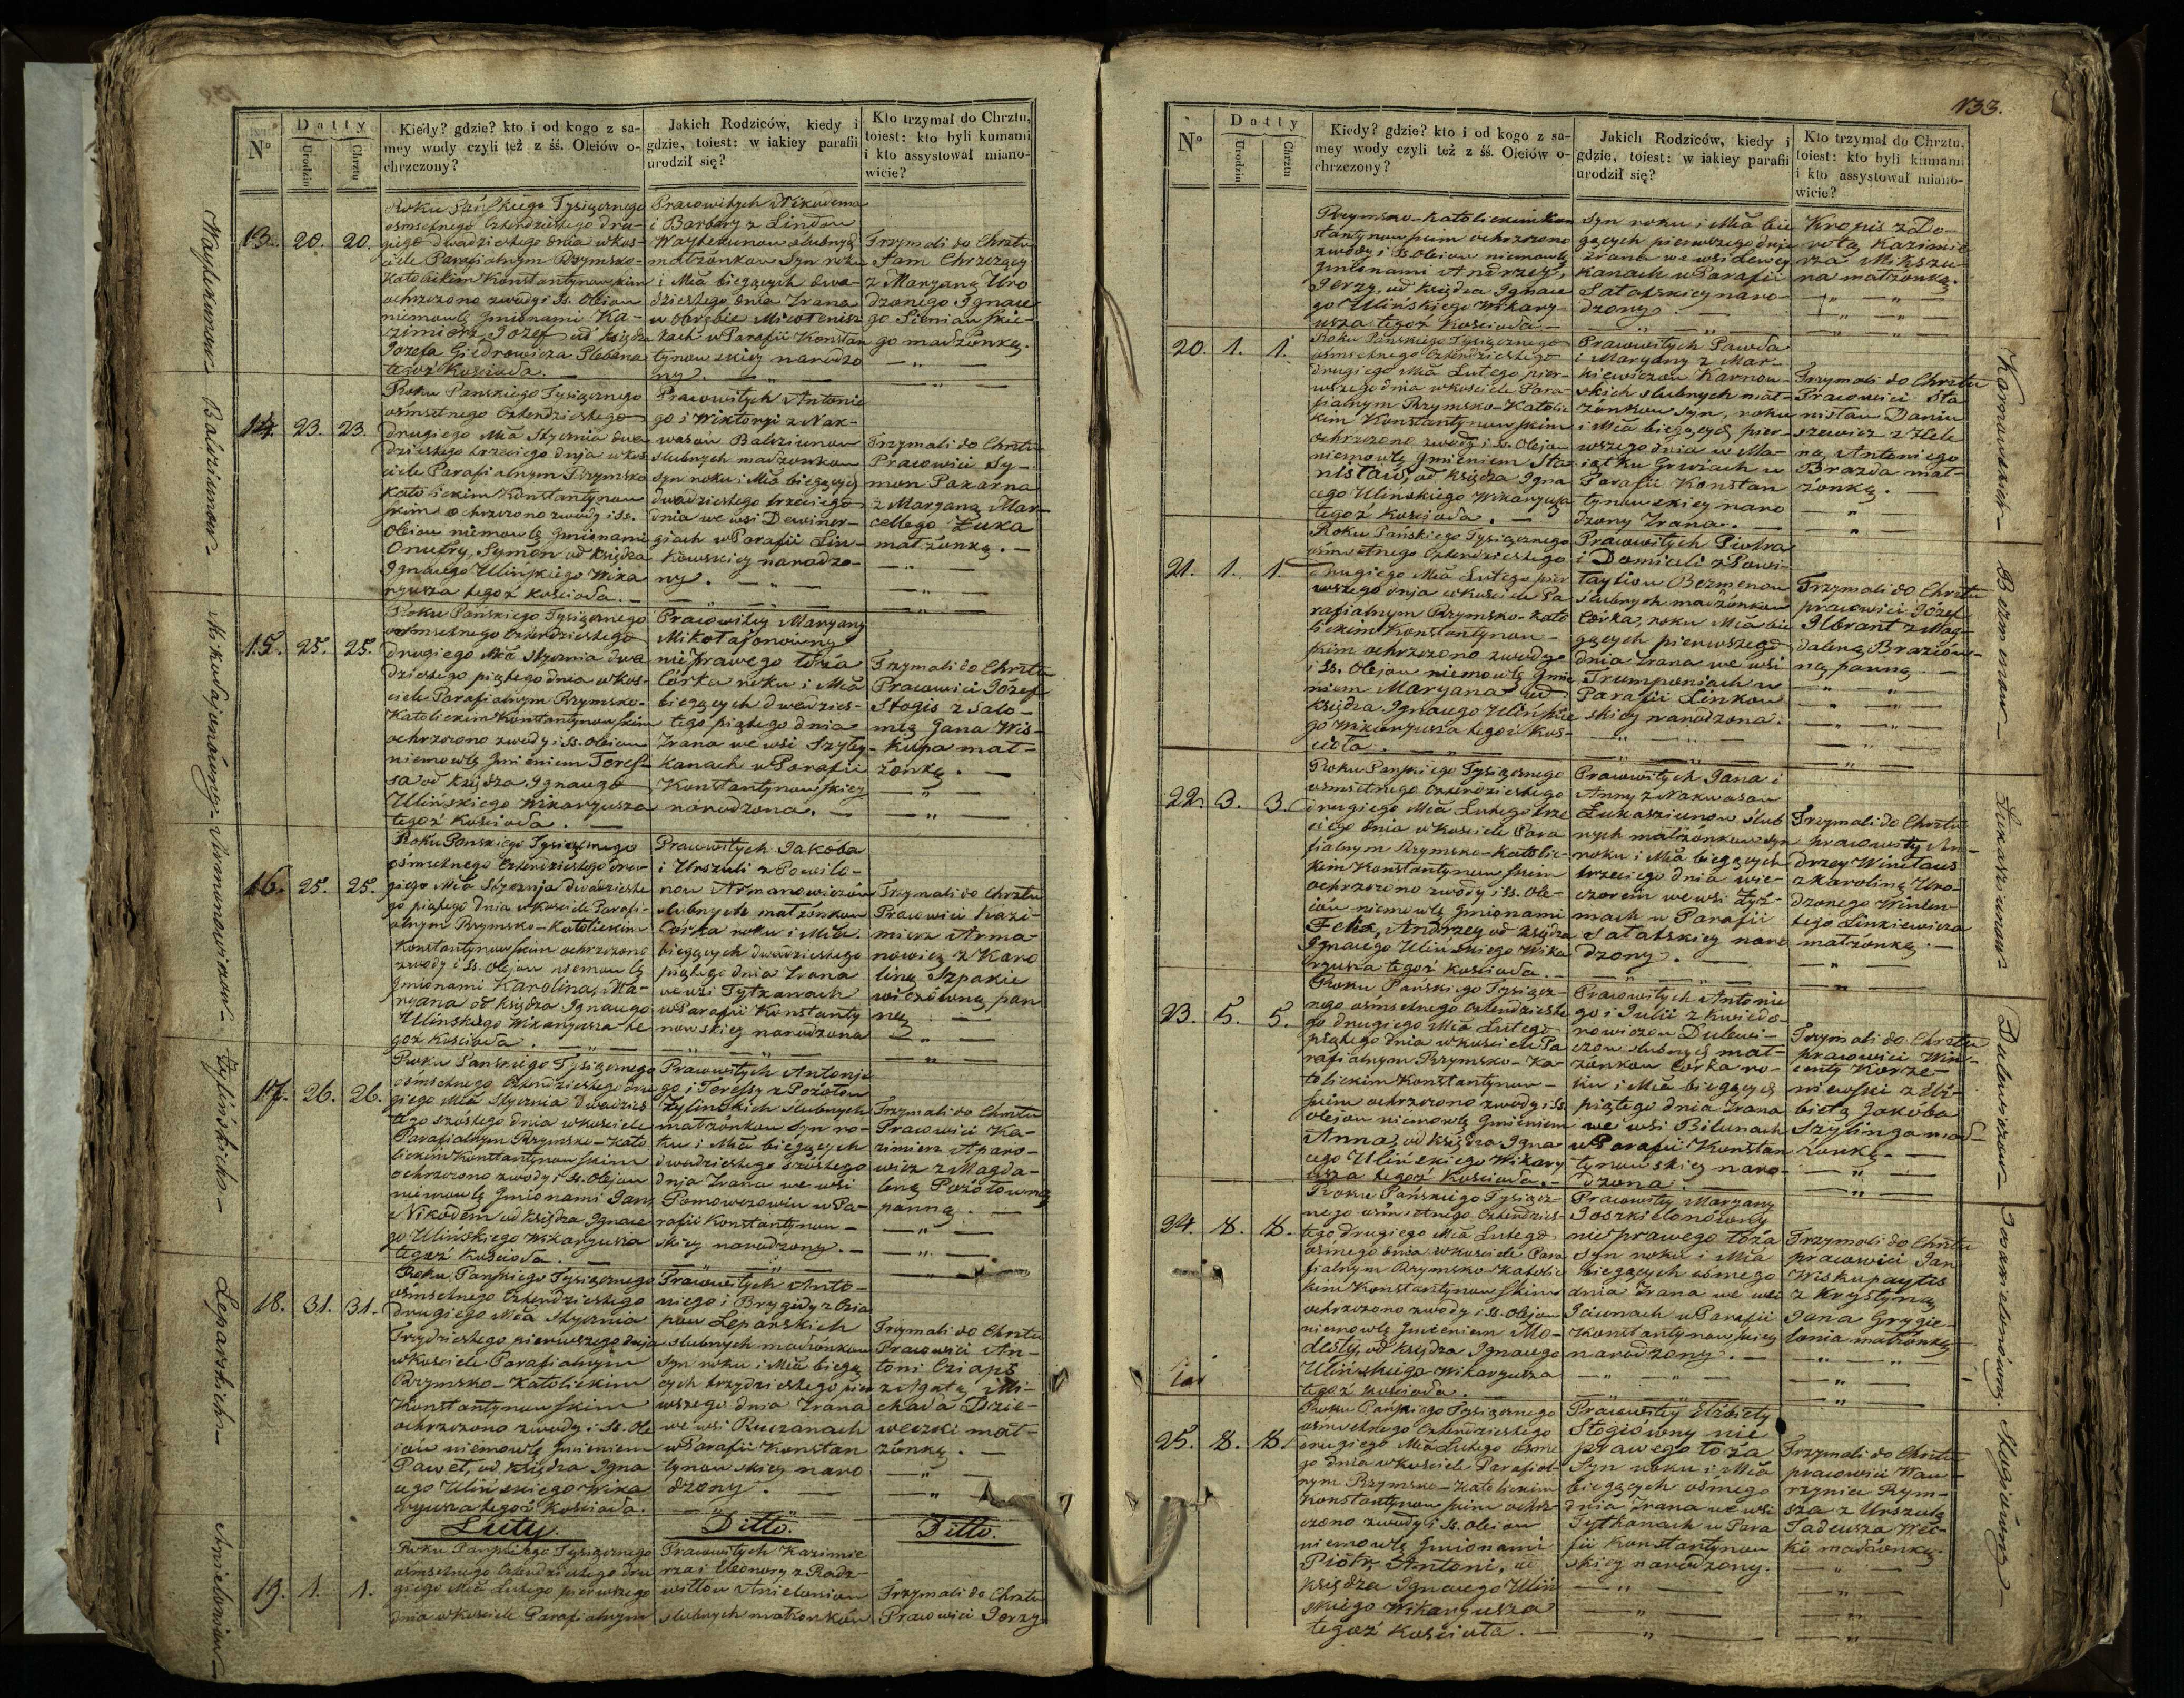 Nº
Datty
Urodzin
Chrztu
Kiedy? gdzie? kto i od kogo z sa-
mey wody czyli też z śś. Oleiów o-
chrzczony?
Jakich Rodziców, kiedy i
gdzie, toiest: w iakiey parafii
urodził się?
Kto trzymał do Chrztu,
toiest: kto byli kumami
i kto assystował miano-
wicie?
13. 20. 20.
Roku Pańskiego Tysiącznego
ośmsetnego Czterdziestego dru-
giego dwadziestego dnia w Koś-
ciele Parafialnym Rzymsko-
Katolickim Konstantynowskim
ochrzczono z wody i SS. Oleiow
niemowlę Jmionami Ka-
zimierz Jozef od Księdza
Jozefa Giedrowicza Plebana
tegoż Kościoła. —
Pracowitych Nikodema
i Barbary z Lindow
Waytekunow ślubnych
małżonkow Syn roku
i Mca bieżących dwa-
dziestego dnia Zrana
w Obrębie
w Parafii Konstan
tynowskiey narodzo
ny. —
Trzymali do Chrztu
Sam Chrzczący
z Maryanną Uro
dzonego Ignace-
go Sieniawskie-
go małżonką.
14. 23. 23.
Roku Pańskiego Tysiącznego
ośmsetnego Czterdziestego
drugiego Mca Stycznia dwa
dziestego trzeciego dnia w Koś
ciele Parafialnym Rzymsko
Katolickim Konstantynow
skim ochrzczono z wody i SS.
Oleiow niemowlę Jmionami
Onufry, Symon od Księdza
Ignacego Ulińskiego Wika
ryusza tegoż Kościoła. —
Pracowitych Antonie
go i Wiktoryi z Nak-
wasow Balziunow
ślubnych małżonkow
Syn roku i Mca bieżących
dwadziestego trzeciego
dnia we wsi Dewiner-
giach w Parafii Lin-
kowskiey narodzo-
ny. —
Trzymali do Chrztu
Pracowici Sy-
mon Pakarna
z Maryanną Mar-
cellego Łuka
małżonką. —
15. 25. 25.
Roku Pańskiego Tysiącznego
ośmsetnego Czterdziestego
drugiego Mca Stycznia dwa
dziestego piątego dnia w Koś-
ciele Parafialnym Rzymsko-
Katolickim Konstantynowskim
ochrzczono z wody i SS. Oleiow
niemowlę Jmieniem Teres-
sa od Księdza Ignacego
Ulińskiego Wikaryusza
tegoż Kościoła. —
Pracowitey Maryany
Mikołajonowny
nieprawego łoża
Córka roku i Mca
bieżących dwadzies-
tego piątego dnia
Zrana we wsi Szyley-
kanach w Parafii
Konstantynowskiey
narodzona. —
Trzymali do Chrztu
Pracowici Józef
Stogis z Salo-
meą Jana Wis-
kupa mał-
żonką. —
16. 25. 25.
Roku Pańskiego Tysiącznego
ośmsetnego Czterdziestego dru-
giego Mca Stycznia Dwadzieste
go piątego dnia w Kosciele Parafi-
alnym Rzymsko-Katolickim
Konstantynowskim ochrzczono
z wody i SS. Olejow niemowlę
Jmionami Karolina, Ma-
ryana od Księdza Ignacego
Ulińskiego Wikaryusza te
goż Kościoła. —
Pracowitych Jakoba
i Urszuli z Powilo-
now Armanowiczow
ślubnych małżonkow
Córka roku i Mca
bieżących dwadziestego
piątego dnia Zrana
we wsi Tytkanach
w Parafii Konstanty
nowskiey narodzona
Trzymali do Chrztu
Pracowici Kazi-
mierz Arma-
nowicz z Karo
liną Szpakie
wiczówną pan
ną. —
17. 26. 26.
Roku Pańskiego Tysiącznego
ośmsetnego Czterdziestego dru
giego Mca Stycznia Dwadzies
tego szóstego dnia w kościele
Parafialnym Rzymsko-Kato
lickim Konstantynowskim
ochrzczono z wody i SS. Olejow
niemowlę Jmionami Jan,
Nikodem od Księdza Ignace
go Ulińskiego Wikaryusza
tegoż Kościoła. —
Pracowitych Antonie
go i Teressy z Pozołow
Żylinskich ślubnych
małżonkow Syn ro-
ku i Mca bieżących
dwadziestego szóstego
dnia Zrana we wsi
w Pa-
rafii Konstantynow-
skiey narodzony. —
Trzymali do Chrztu
Pracowici Ka-
zimierz Aparo-
wicz z Magda-
leną Pozołowną
panną. —
18. 31. 31.
Roku Pańskiego Tysiącznego
ośmsetnego Czterdziestego
drugiego Mca Stycznia
Trzydziestego pierwszego dnia
w Kościele Parafialnym
Rzymsko-Katolickim
Konstantynowskim
ochrzczono z wody i SS. Ole
jow niemowlę Jmieniem
Paweł, od Księdza Igna
cego Ulińskiego Wika
ryusza tegoż Kościoła.
Pracowitych Anto-
niego i Brygidy z Czia
pow Leparskich
ślubnych małżonkow
Syn roku i Mca bieżą
cych trzydziestego pier
wszego dnia Zrana
we wsi Ruczanach
w Parafii Konstan
tynowskiey naro
dzony. —
Trzymali do Chrztu
Pracowici An-
toni Cziapś
z Agatą Mi-
chała Dzie-
weczki mał-
żonką. —
Luty.
Ditto.
Ditto.
19. 1. 1.
Roku Pańskiego Tysiącznego
ośmsetnego Czterdziestego dru
giego Mca Lutego pierwszego
dnia w Kościele Parafialnym
Pracowitych Kazimie
rza i Eleonory z Radz-
wiłłow Anielonow
ślubnych małżonków
Trzymali do Chrztu
Pracowici Jerzy
Waytekunow
Balziunow
Mikołajonowny
Armanowiczow
Żylińskich
Leparskich
Anielonow
133.
Nº
Datty
Urodzin
Chrztu
Kiedy? gdzie? kto i od kogo z sa-
mey wody czyli też z śś. Oleiów o-
chrzczony?
Jakich Rodziców, kiedy i
gdzie, toiest: w iakiey parafii
urodził się?
Kto trzymał do Chrztu,
toiest: kto byli kumami
i kto assystował miano-
wicie?
Rzymsko-Katolickim Kon
stantynowskim ochrzczono
z wody i SS. Olejow niemowlę
Jmionami Andrzey,
Jerzy, od Księdza Ignace
go Ulińskiego Wikary-
usza tegoż Kościoła. —
Syn roku i Mca bie
żących pierwszego dnia
Zrana we wsi
kanach w Parafii
Sałatskiey naro-
dzony. —
Kropis z Do-
rotą Kazimie
rza Mikszu-
na małżonką.
20. 1. 1.
Roku Pańskiego Tysiącznego
ośmsetnego Czterdziestego
drugiego Mca Lutego pier-
wszego dnia w kościele Para-
fialnym Rzymsko-Katolic
kim Konstantynowskim
ochrzczono z wody i SS. Olejow
niemowlę Jmieniem Sta-
nisław, od Księdza Igna
cego Ulińskiego Wikaryusza
tegoż Kościoła. —
Pracowitych Pawła
i Maryany z Mar-
kiewiczow Karnow-
skich ślubnych mał-
żonkow Syn, roku
i Mca bieżących pier-
wszego dnia w Ma-
iątku Gruziach w
Parafii Konstan
tynowskiey naro
dzony Zrana. —
Trzymali do Chrztu
Pracowici Sta
nisław Daniu
szewicz z Hele
ną Antoniego
Brazda mał-
żonką. —
21. 1. 1.
Roku Pańskiego Tysiącznego
ośmsetnego Czterdziestego
drugiego Mca Lutego pier
wszego dnia w kościele Pa
rafialnym Rzymsko-Kato
lickim Konstantynow-
skim ochrzczono z wody
i SS. Olejow niemowlę Jmie
niem Maryana od
Księdza Ignacego Ulińskie
go Wikaryusza tegoż Koś-
cioła. —
Pracowitych Piotra
i Domiceli z Powi-
łaytiow Bezmenow
ślubnych małżonkow
Córka, roku i Mca bie
żących pierwszego
dnia Zrana we wsi
Trumponiach w
Parafii Linkow
skiey narodzona.
Trzymali do Chrztu
pracowici Józef
Ilbrant z Mag-
daleną Braziow-
ną panną. —
22. 3. 3.
Roku Pańskiego Tysiącznego
ośmsetnego Czterdziestego
drugiego Mca Lutego trze
ciego dnia w kościele Para
fialnym Rzymsko-Katolic-
kim Konstantynowskim
ochrzczono z wody i SS. Ole-
iów niemowlę Jmionami
Felix, Andrzey od Księdza
Ignacego Ulińskiego Wika
ryusza tegoż Kościoła. —
Pracowitych Jana i
Anny z Nakwasow
Łukasziunow ślub
nych małżonkow Syn
roku i Mca bieżących
trzeciego dnia wie-
czorem we wsi Łyż-
mach w Parafii
Sałatskiey naro
dzony. —
Trzymali do Chrztu
pracowity An-
drzey Winclaus
z Karoliną Uro-
dzonego Wincen-
tego Linkiewicza
małżonką. —
23. 5. 5.
Roku Pańskiego Tysiącz-
nego ośmsetnego Czterdzieste
go drugiego Mca Lutego
piątego dnia w kościele Pa
rafialnym Rzymsko-Ka-
tolickim Konstantynow-
skim ochrzczono z wody i SS.
Olejow niemowlę Jmieniem
Anna, od Księdza Igna-
cego Ulińskiego Wikary
usza tegoż Kościoła. —
Pracowitych Antonie
go i Julii z Kwiedo-
rowiczow Dulewi-
czow ślubnych mał-
żonkow Córka ro-
ku i Mca bieżących
piątego dnia Zrana
we wsi Bilunach
w Parafii Konstan
tynowskiey naro-
dzona.
Trzymali do Chrztu
pracowici Win-
centy Korze-
niewski z Elż-
bietą Jakóba
Szylinga mał-
żonką. —
24. 8. 8.
Roku Pańskiego Tysiącz-
nego ośmsetnego Czterdzies-
tego drugiego Mca Lutego
ósmego dnia w kościele Para
fialnym Rzymsko-Katolic
kim Konstantynowskim
ochrzczono z wody i SS. Olejow
niemowlę Jmieniem Mo-
desty, od Księdza Ignacego
Ulińskiego Wikaryusza
tegoż Kościoła. —
Pracowitey Maryany
Joszkielonówny
nieprawego łoża
Syn roku i Mca
bieżących ósmego
dnia Zrana we wsi
Jciunach w Parafii
Konstantynowskiey
narodzony. —
Trzymali do Chrztu
pracowici Jan
Wiskupaytis
z Krystyną
Jana Grygie-
lonia małżonką
25. 8. 8.
Roku Pańskiego Tysiącznego
ośmsetnego Czterdziestego
drugiego Mca Lutego ósme
go dnia w Kościele Parafial-
nym Rzymsko-Katolickim
Konstantynowskim ochrz-
czono z wody i SS. Oleiow
niemowlę Jmionami
Piotr, Antoni, od
Księdza Ignacego Uliń
skiego Wikaryusza
tegoż Kościoła. —
Pracowitey Elżbiety
Stogiówny nie
prawego łoża
Syn roku i Mca
bieżących ósmego
dnia Zrana we wsi
Tytkanach w Para
fii Konstantynow
skiey narodzony.
Trzymali do Chrztu
pracowici Waw-
rzyniec Rym-
sza z Urszulą
Tadeusza WEC-
ki małżonką.
Karnowskich
Bezmenow
Łukasziunow
Dulewiczow
Joszkielonówny.
Stogiówny